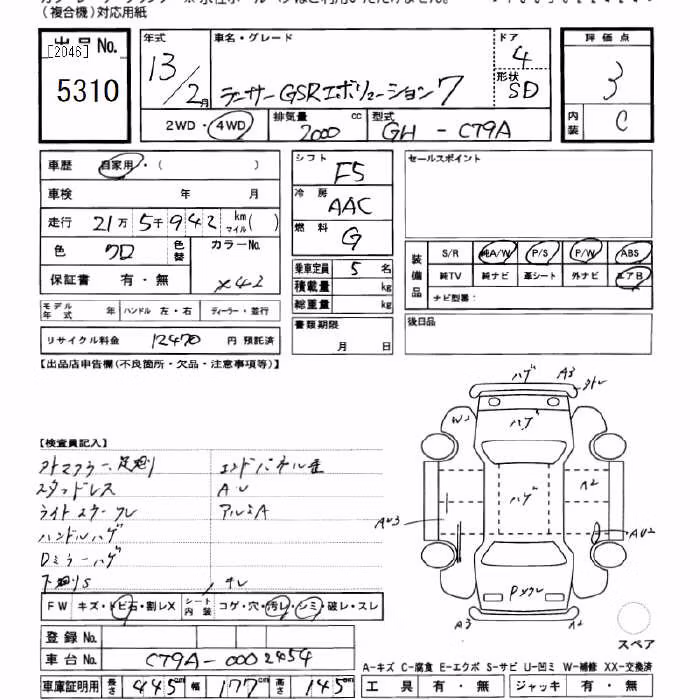 (複合機)対応用紙
出品No.
[2046]
5310
年式
13/2月
車名・グレード
ランサーGSRエボリューション7
ドア
4
形状
SD
評価点
3
内装
C
2WD・4WD
排気量
2000 cc
型式
GH - CT9A
車歴 自家用・( )
車検 年 月
走行 21万5千942 km マイル( )
色 クロ 色替
カラーNo.
X42
保証書 有・無
モデル年式 年 ハンドル 左・右 ディーラー・並行
リサイクル料金 12470 円 預託済
シフト F5
冷房 AAC
燃料 G
乗車定員 5 名
積載量 kg
総重量 kg
書類期限
月 日
セールスポイント
装備品
S/R 純A/W P/S P/W ABS
純TV 純ナビ 革シート 外ナビ エアB
ナビ型番:
後日品
【出品店申告欄(不良箇所・欠品・注意事項等)】
【検査員記入】
スタッドレス
AU
アルミA
ハンドルハゲ
Dミラーハゲ
下廻りS
ハゲ
A3
ハゲ
W2
ハゲ
A2
AU3
AU2
A3
A2
スペア
FW キズ・トビ石・割レX シート内装 コゲ・穴・汚レ・シミ・破レ・スレ
登録No.
車台No. CT9A-0002454
車庫証明用 長さ 445cm 幅 177cm 高さ 145cm
A-キズ C-腐食 E-エクボ S-サビ U-凹ミ W-補修 XX-交換済
工具 有・無 ジャッキ 有・無